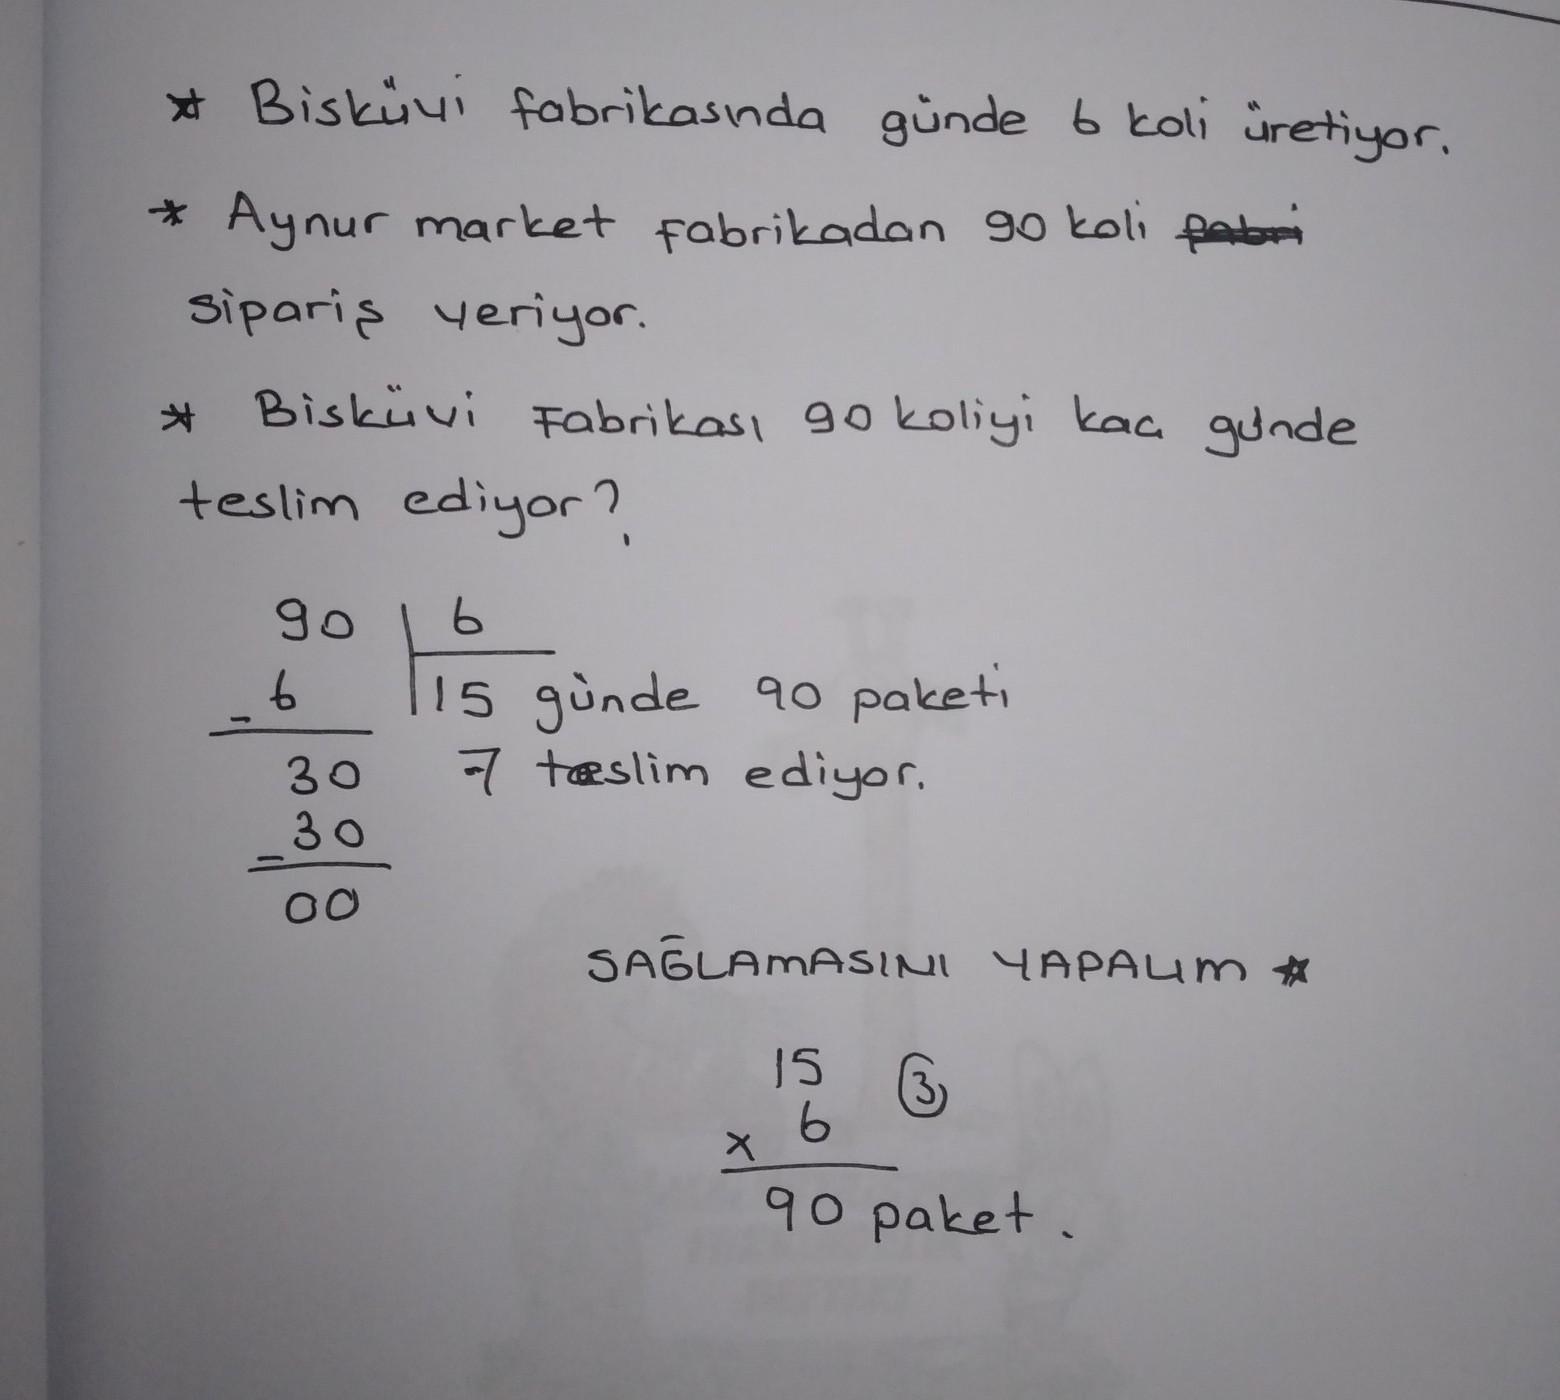 * Bisküvi fabrikasında günde 6 koli üretiyor.
* Aynur market fabrikadan 90 koli fabri
sipariş veriyor.
* Bisküvi Fabrikası 90 koliyi kaç günde
teslim ediyor?
90 | 6
- 6 | 15 günde 90 paketi
30 → teslim ediyor.
- 30
00
SAĞLAMASINI YAPALIM *
15 3
x 6
90 paket.